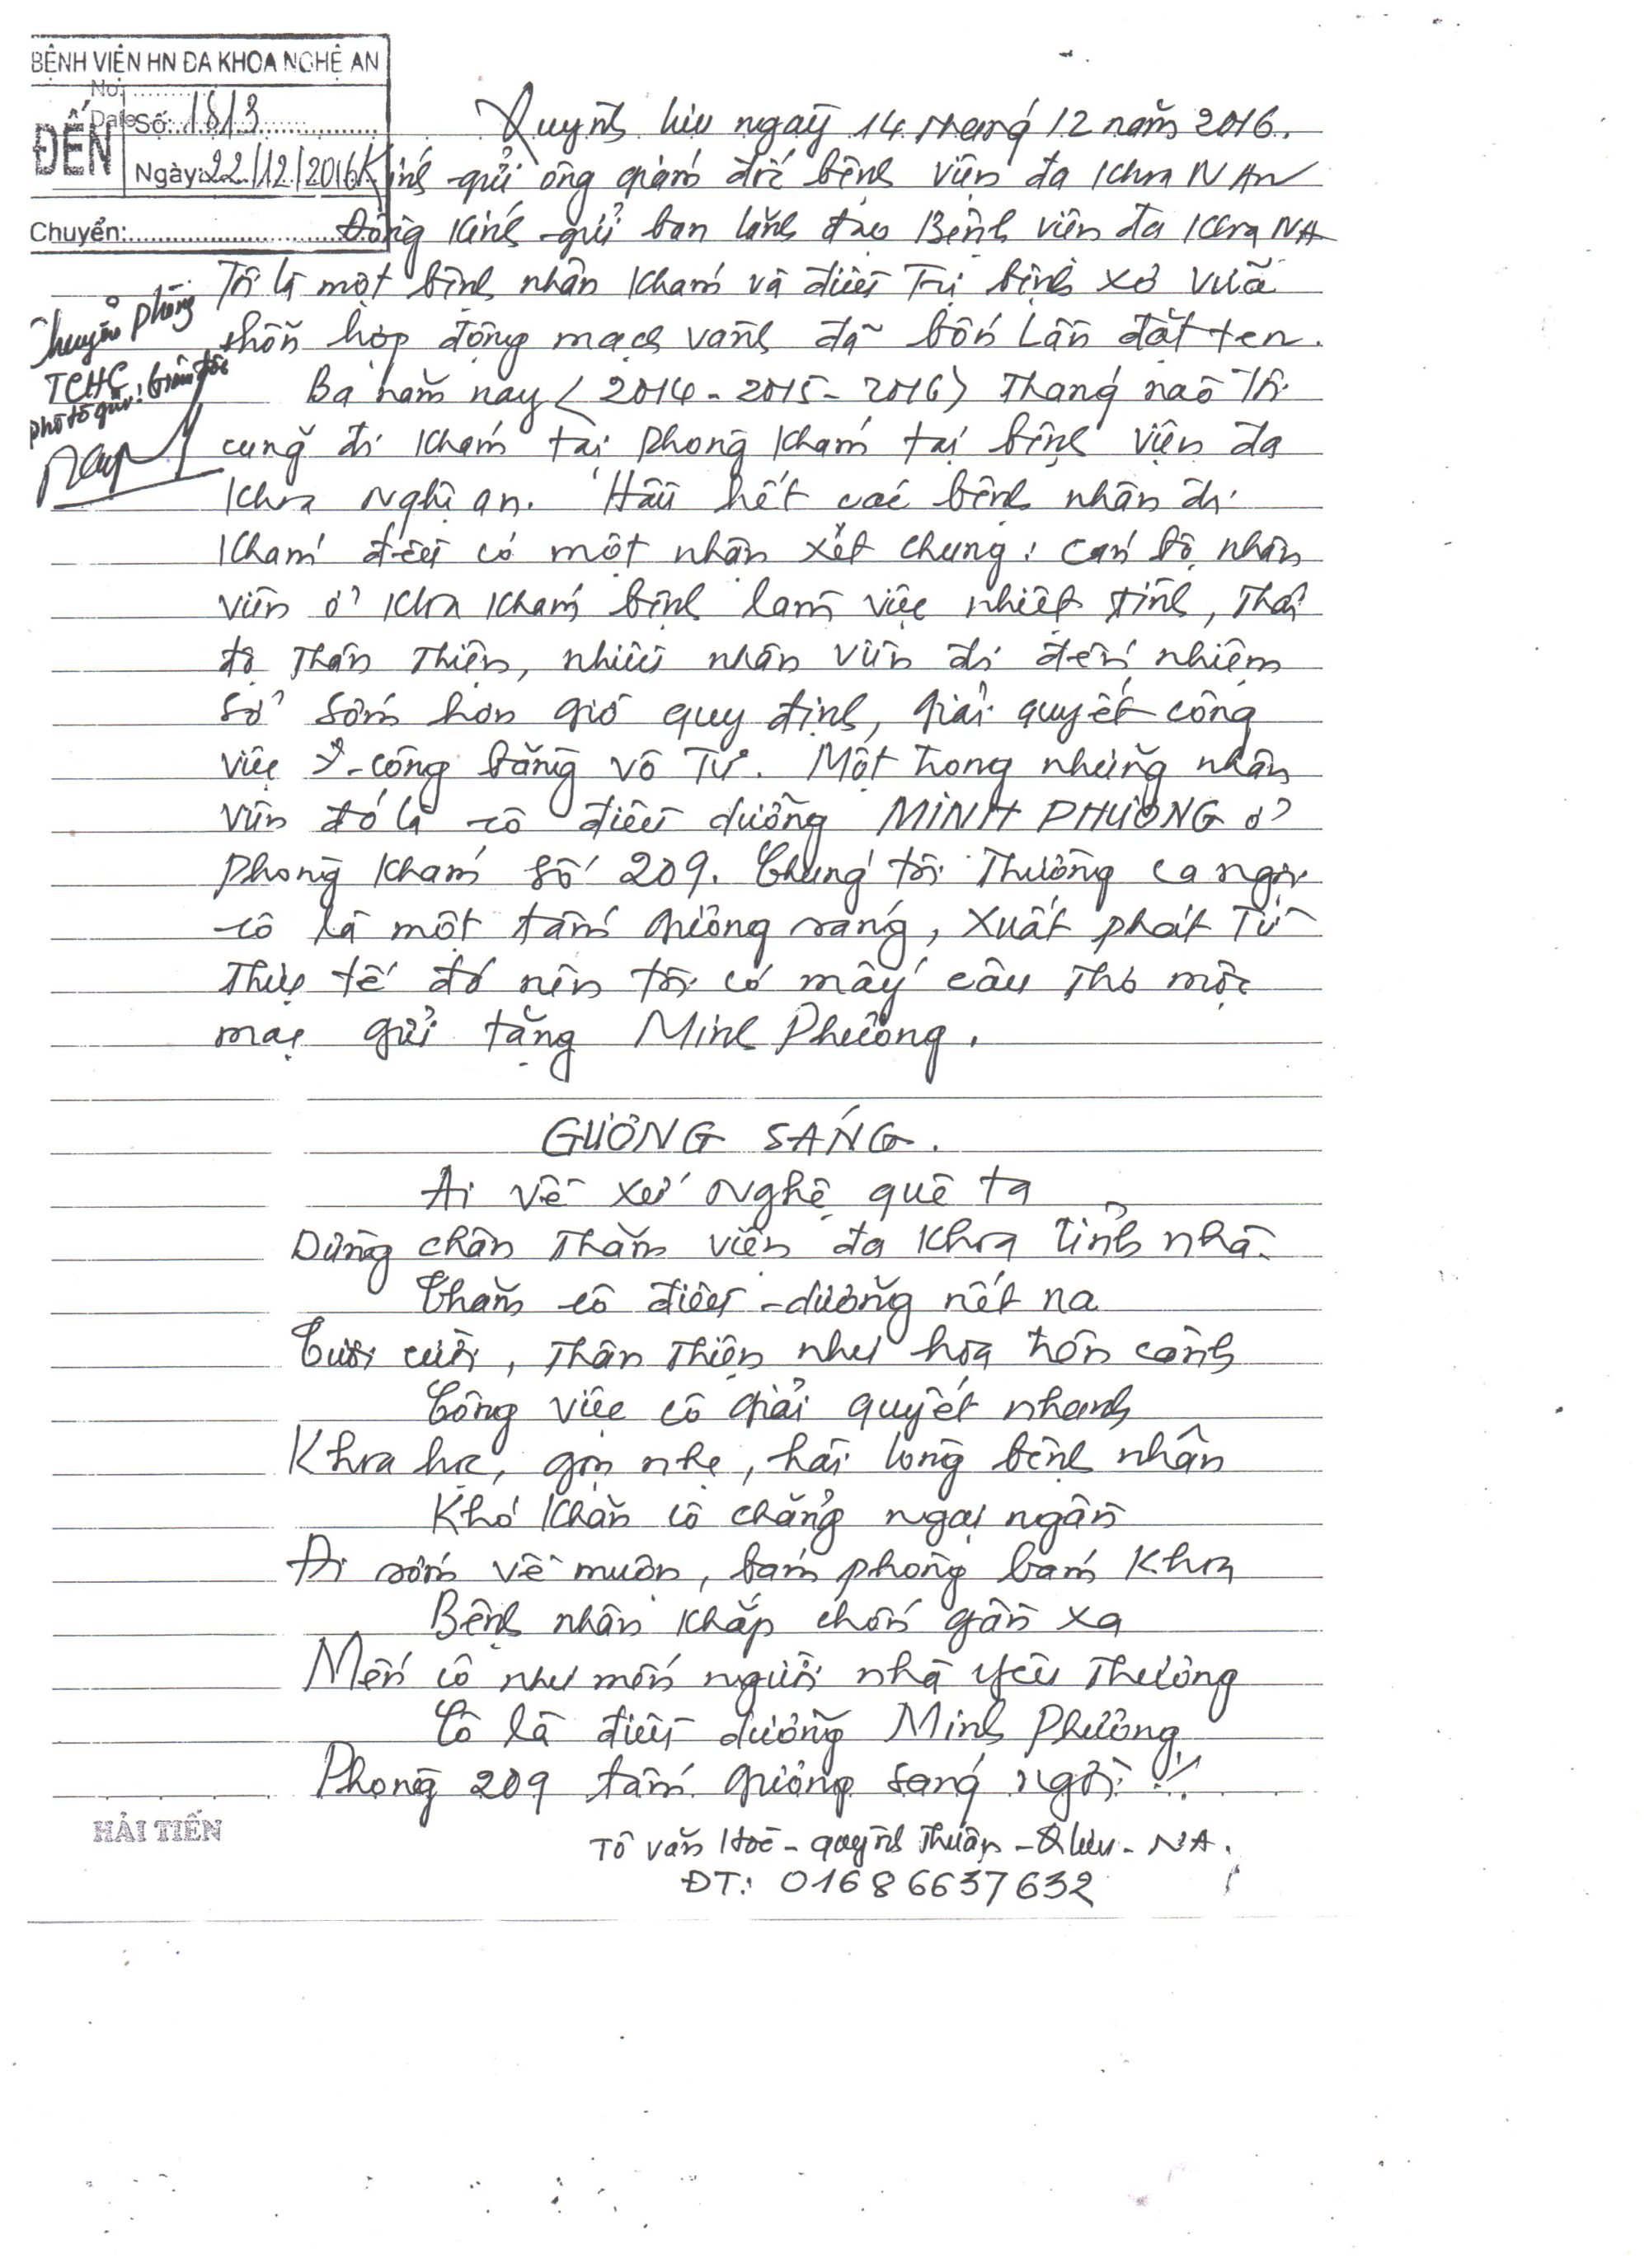 BỆNH VIỆN HN ĐA KHOA NGHỆ AN
No:
Date
ĐẾN
Số: 1813
Ngày: 22/12/2016
Chuyển:
Chuyển phòng
TCHC
phô tô gửi: Giám đốc
Quỳnh lưu ngày 14 tháng 12 năm 2016.
Kính gửi ông giám đốc bệnh viện đa khoa N An
Đồng kính gửi ban lãnh đạo Bệnh viện đa khoa NA
Tôi là một bệnh nhân khám và điều trị bệnh xơ vữa
hỗn hợp động mạch vành đã bốn lần đặt ten.
Ba năm nay (2014 - 2015 - 2016) tháng nào tôi
cũng đi khám tại phòng khám tại bệnh viện đa
khoa Nghệ an. Hầu hết các bệnh nhân đi
khám đều có một nhận xét chung: cán bộ nhân
viên ở khoa khám bệnh làm việc nhiệt tình, thái
độ thân thiện, nhiều nhân viên đi đến nhiệm
sở sớm hơn giờ quy định, giải quyết công
việc công bằng vô tư. Một trong những nhân
viên đó là cô điều dưỡng MINH PHƯƠNG ở
phòng khám số 209. Chúng tôi thường ca ngợi
cô là một tấm gương sáng, xuất phát từ
thực tế đó nên tôi có mấy câu thơ mộc
mạc gửi tặng Minh Phương.
GƯƠNG SÁNG.
Ai về xứ nghệ quê ta
Dừng chân thăm viện đa khoa tỉnh nhà.
Thăm cô điều dưỡng nết na
Tươi cười, thân thiện như hoa trên cành
Công việc cô giải quyết nhanh
Khoa học, gọn nhẹ, hài lòng bệnh nhân
Khó khăn cô chẳng ngại ngần
Đi sớm về muộn, bám phòng bám khoa
Bệnh nhân khắp chốn gần xa
Mến cô như mến người nhà yêu thương
Cô là điều dưỡng Minh Phương
Phòng 209 tấm gương sáng ngời !!
HẢI TIẾN
Tô Văn Hoè - quỳnh Thuận - Q lưu - NA.
ĐT: 01686637632